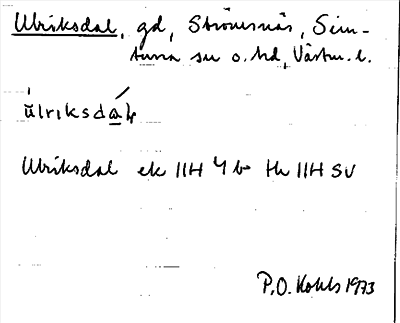 Ulriksdal, gd, Strömsnäs, Sim-
tuna sn o. hd, Västm. l.
ùlriksdá̱ɫ
Ulriksdal ek 11H 4 b th 11H SV
P.O. Kohls 1973